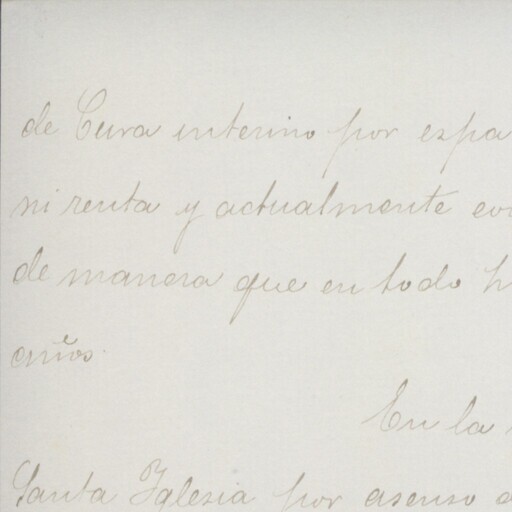 de Cura interino por espa
ni renta y actualmente
de manera que en todo h
años
En la
Santa Iglesia por asenso